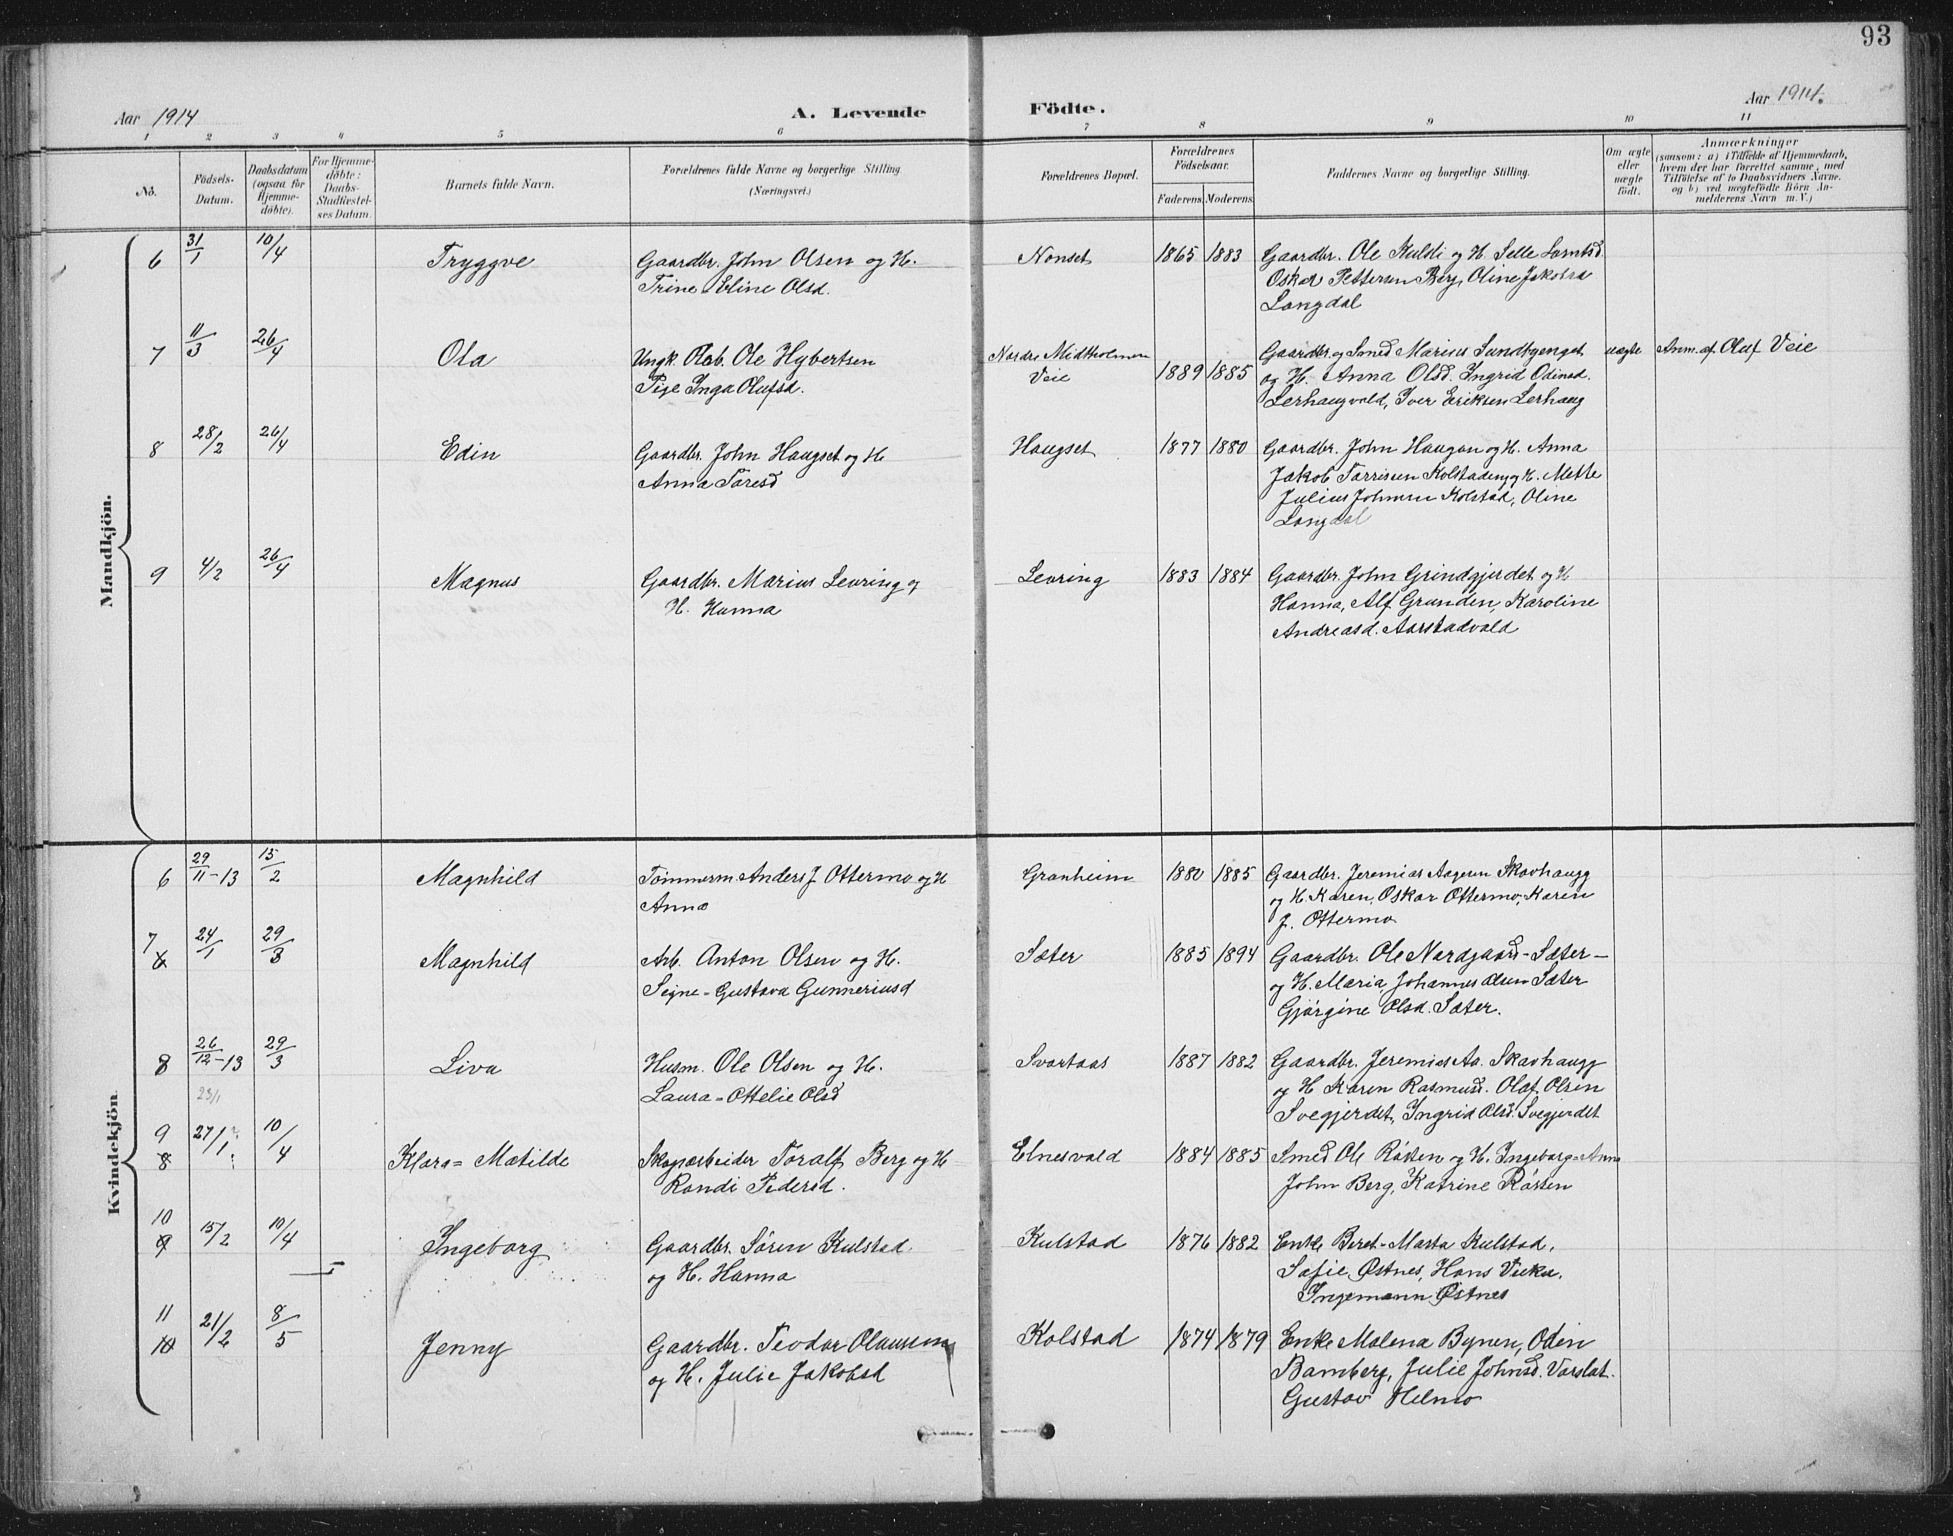 93
Aar 1914
A. Levende Födte.
Aar 1914.
1 2 3 4 5 6 7 8 9 10 11
No.
Födsels-Datum.
Daabsdatum (ogsaa for Hjemme-döbte).
For Hjemme-döbte: Daabs-Stadfæstel-ses Datum.
Barnets fulde Navn.
Forældrenes fulde Navne og borgerlige Stilling
(Næringsvei.)
Forældrenes Bopæl.
Forældrenes Födselsaar.
Faderens. Moderens.
Faddernes Navne og borgerlige Stilling.
Om ægte eller uægte födt.
Anmærkninger
(saasom: a) i Tilfælde af Hjemmedaab,
hvem der har forrettet samme, med
Tilföielse af to Daabsvidners Navne.
og b) ved uægtefödte Börn An-
melderens Navn m. V.)
Mandkjön.
6 31/1 10/4 Tryggve Gaardbr. John Olsen og H. Nonset 1865 1883 Gaardbr. Ole Kuldi og H.
Trine Eline Olsd. Oskar Pettersen Berg, Oline Jakobra
Langdal
7 11/3 26/4 Ola Ungk. Arb. Ole Hybertsen Nordre Midtholmen 1889 1885 Gaardbr. og Smed Marius uægte Anm. af Olaf Veie
Pige Inga Olufsd. Veie og H. Anna Olsd. Ingrid Odinsd.
Lerhaugvald, Iver Eriksen Lerhaug
8 28/2 26/4 Edin Gaardbr. John Haugset og H Haugset 1877 1880 Gaardbr. John Haugan og H. Anna
Anna Toresd Jakob Torrisen Kolstad og H. Mette
Julius Johnsen Kolstad, Oline
Langdal
9 4/2 26/4 Magnus Gaardbr. Marius Levring og Levring 1883 1884 Gaardbr. John Grindgjerdet og H
H. Hanna Hanna, Alf Grunden, Karoline
Andreasd. Aarstadvald
Kvindekjön
6 29/11-13 15/2 Magnhild Tömmerm Anders J Ottermo og H Granheim 1880 1885 Gaardbr. Jeremias Aagesen Skavhaugg
Anna og H. Karen, Oskar Ottermo, Karen
J. Ottermo
7 6 24/1 29/3 Magnhild Arb. Anton Olsen og H. Sæter 1885 1894 Gaardbr. Ole Nordgaard-Sæter-
Signe-Gustava Gunneriusd og H. Maria, Johannes Olsen Sæter
Gjørgine Olsd. Sæter.
8 26/12-13 29/3 Liva Husm. Ole Olsen og H. Svartaas 1887 1882 Gaardbr. Jeremias Aa. Skavhaugg
Laura-Ottelie Olsd og H Karen Rasmusd. Olaf Olsen
Svegjerdet, Ingrid Olsd. Svegjerdet
9 8 27/1 10/4 Klara=Matilde Skogarbeider Toralf Berg og H Elnesvald 1884 1885 Smed Ole Røsten og H. Ingeborg=Anna
Randi Pedersd. John Berg, Katrine Røsten
10 9 15/2 10/4 Ingeborg Gaardbr. Søren Kulstad Kulstad 1876 1882 Enke Beret-Marta Kulstad,
og H. Hanna Sofie Østnes, Hans
Ingemann Østnes
11 10 21/2 8/5 Jenny Gaardbr. Teodor Olaussen Kolstad 1874 1879 Enke Malena Bynen, Odin
og H. Julie Jakobsd Bamberg, Julie Johnsd. Vorslat.
Gustav Helmo